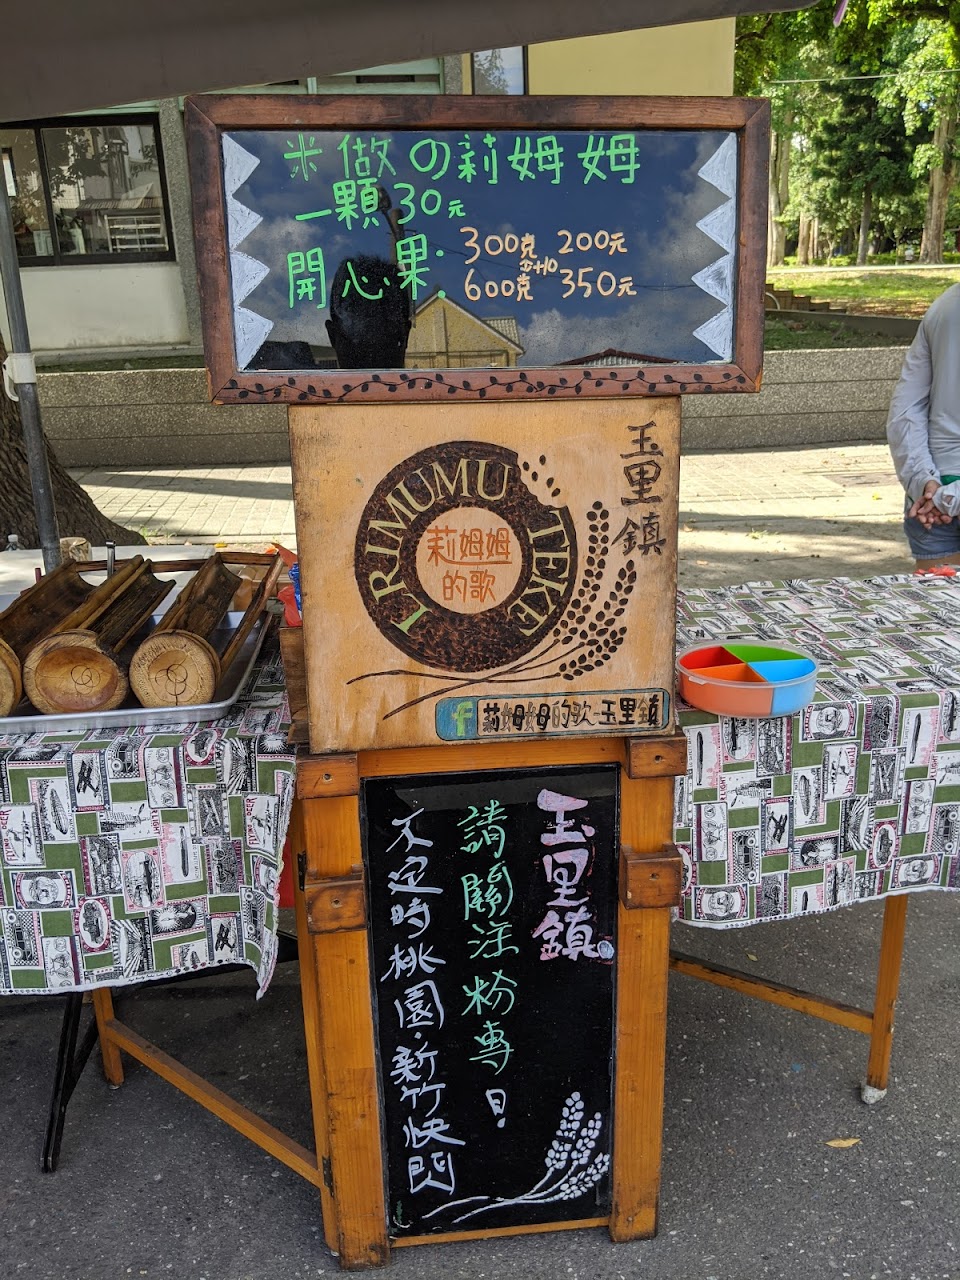 米做の莉姆姆
一顆30元
開心果. 300克 200元
600克 350元
玉里鎮
LRIMUMU TEKE
莉姆姆
的歌
f 莉姆姆的歌-玉里鎮
玉里鎮。
請關注粉專
不定時桃園.新竹快閃